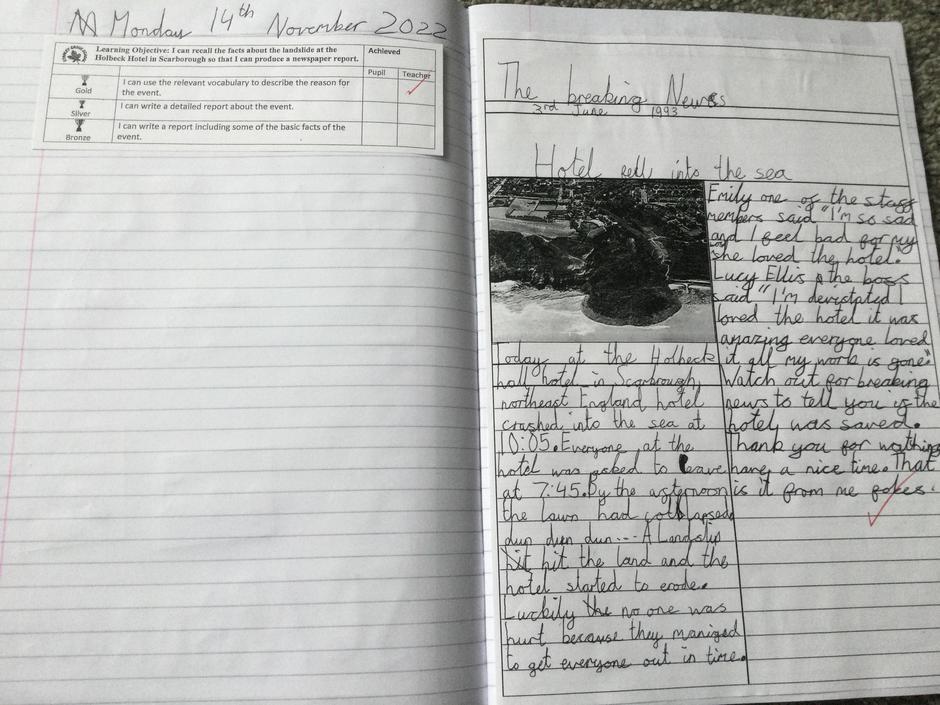 Monday 14th November 2022
Learning Objective: I can recall the facts about the landslide at the
Holbeck Hotel in Scarborough so that I can produce a newspaper report.
Achieved
Pupil
Teacher
Gold
I can use the relevant vocabulary to describe the reason for
the event.
Silver
I can write a detailed report about the event.
Bronze
I can write a report including some of the basic facts of the
event.
The breaking News
3rd June 1993
Hotel fell into the sea
Today at the Holbeck
hall hotel in Scarbrough,
northeast England hotel
crashed into the sea at
10:05. Everyone at the
hotel was asked to leave
at 7:45. By the afternoon
the lawn had collapsed
dun dun dun... A Landslip
hit the land and the
hotel started to erode.
Luckily no one was
hurt because they maniged
to get everyone out in time.
Emily one of the staff
members said "I'm so sad
and I feel bad for my
she loved the hotel."
Lucy Ellis the boss
said "I'm devistated I
loved the hotel it was
amazing everyone loved
it all my work is gone"
Watch out for breaking
news to tell you if the
hotel was saved.
Thank you for wathing
have a nice time. That
is it from me fokes.